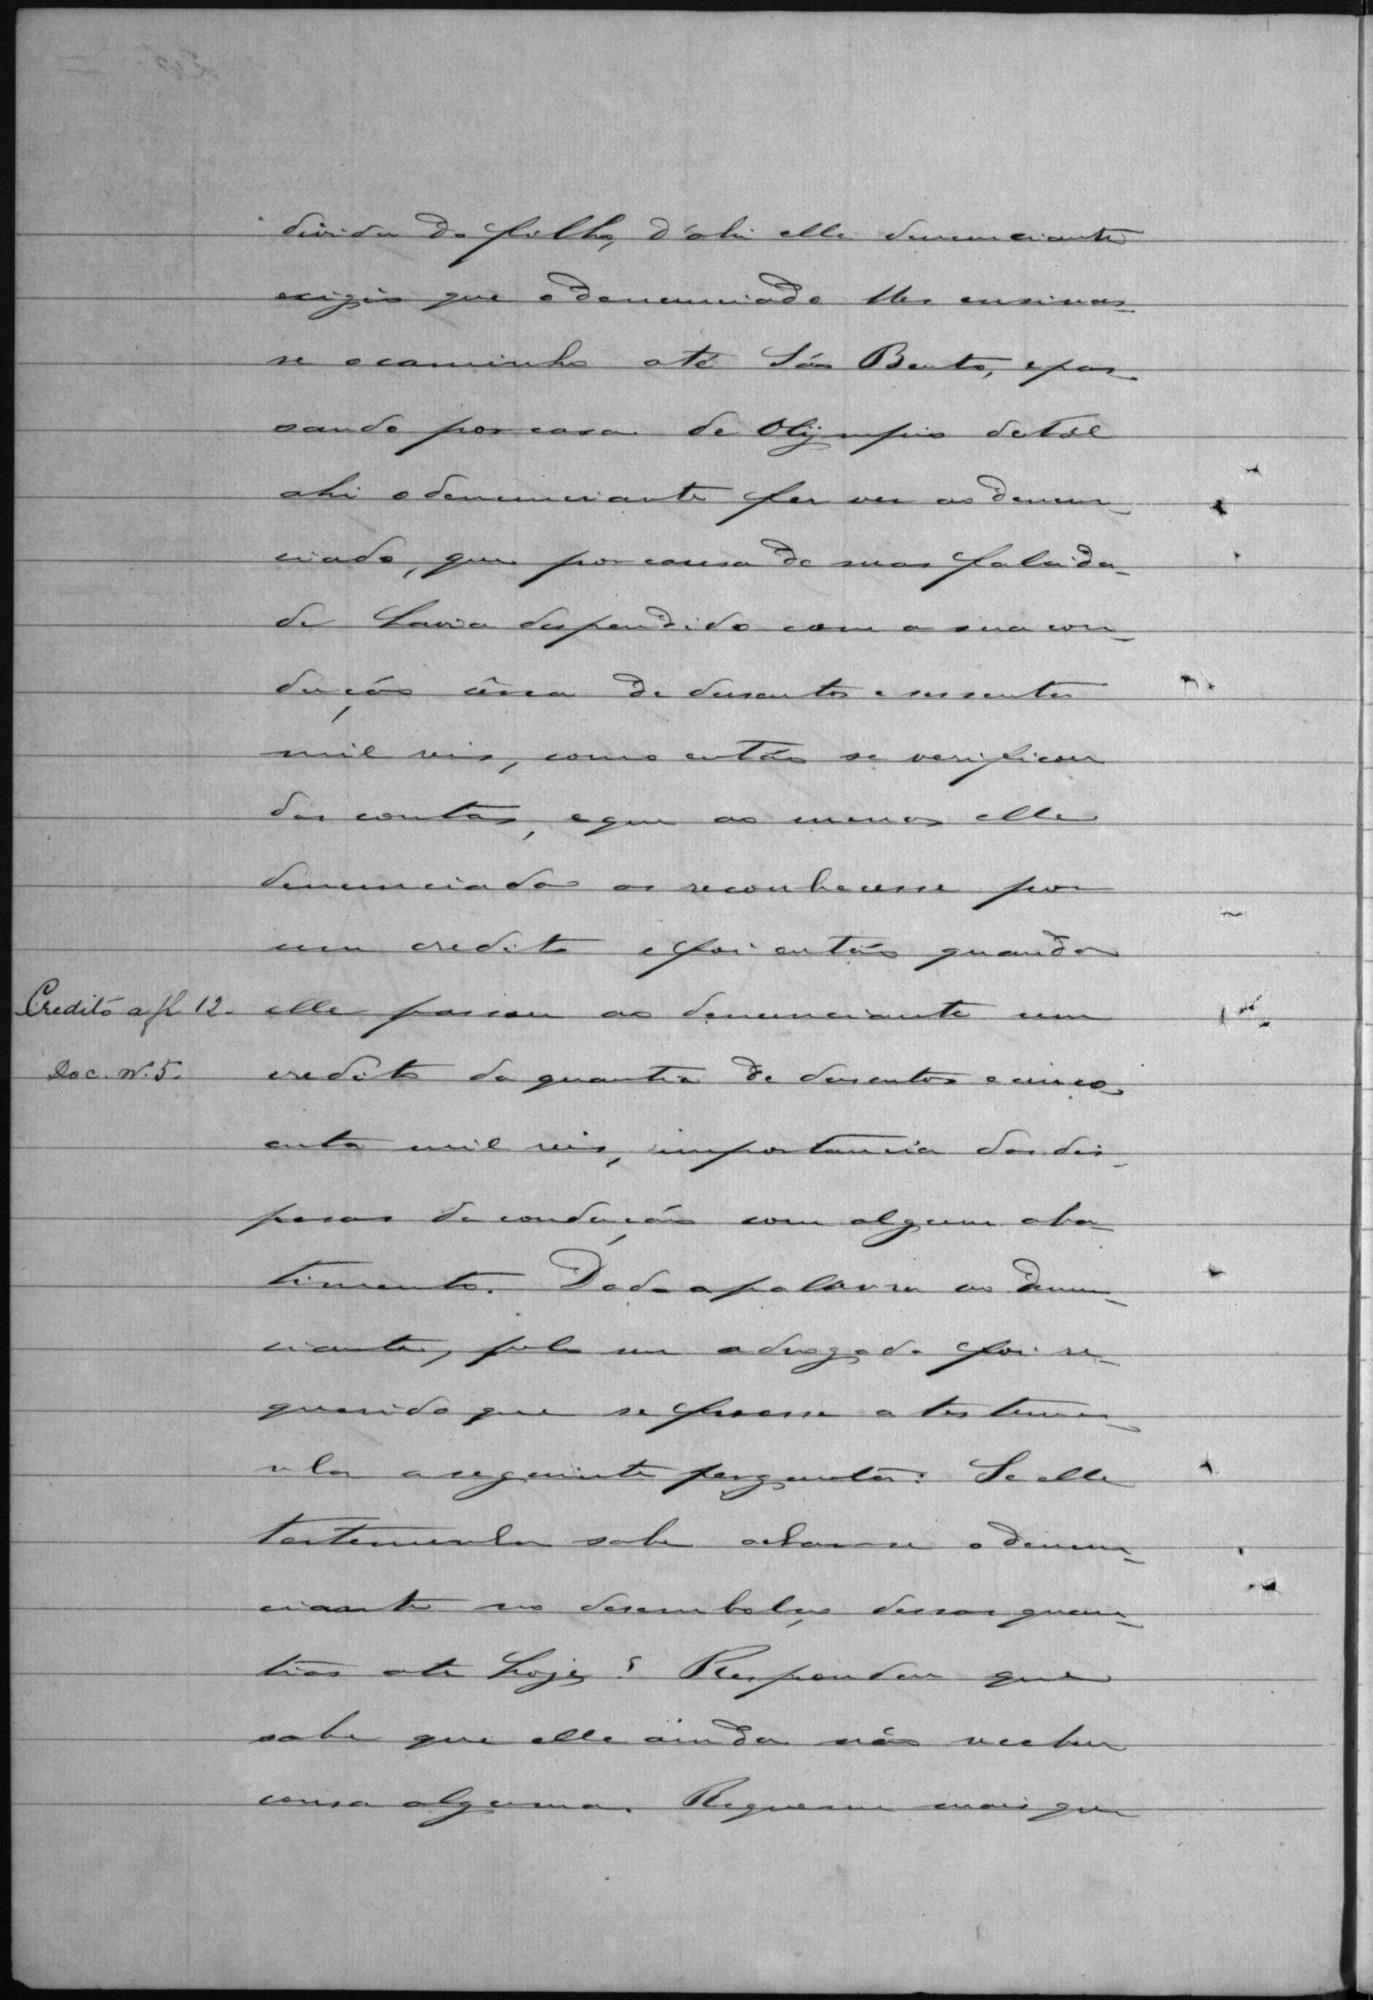 divida do filho, d'ahi elle denunciante
exigio que o denunciado lhes ensinas-
se o caminho até São Bento, e pas-
sando por casa de Olympio de tal
ahi o denunciante fez ver ao denun-
ciado, que por causa de suas falsida-
de havia despendido com a sua con-
dução cerca de dusentos e sessenta
mil reis, como então se verificou
das contas, e que ao menos elle
denunciado os reconhecesse por
um credito e foi então quando
Credito a fl 12. elle passou ao denunciante um
Doc. N. 5. credito da quantia de dusentos e cinco-
enta mil reis, importancia das dis-
pesas da condução com algum aba-
timento. Dada a palavra ao denun-
ciante, pelo seu advogado foi re-
querido que se fisesse a testemu-
nha a seguinte pergunta: Se elle
testemunha sabe achar-se o denun-
ciante no desembolço dessas quan-
tias até hoje? Respondeu que
sabe que elle ainda não recebeu
cousa alguma. Requereu mais que